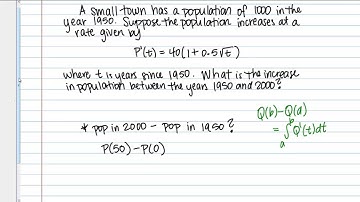 A small town has a population of 1000 in the
year 1950. Suppose the population increases at a
rate given by
P'(t) = 40(1+0.5√t)
where t is years since 1950. What is the increase
in population between the years 1950 and 2000?
* pop in 2000 - pop in 1950?
P(50) - P(0)
Q(b) - Q(a)
= ∫ₐᵇ Q'(t)dt